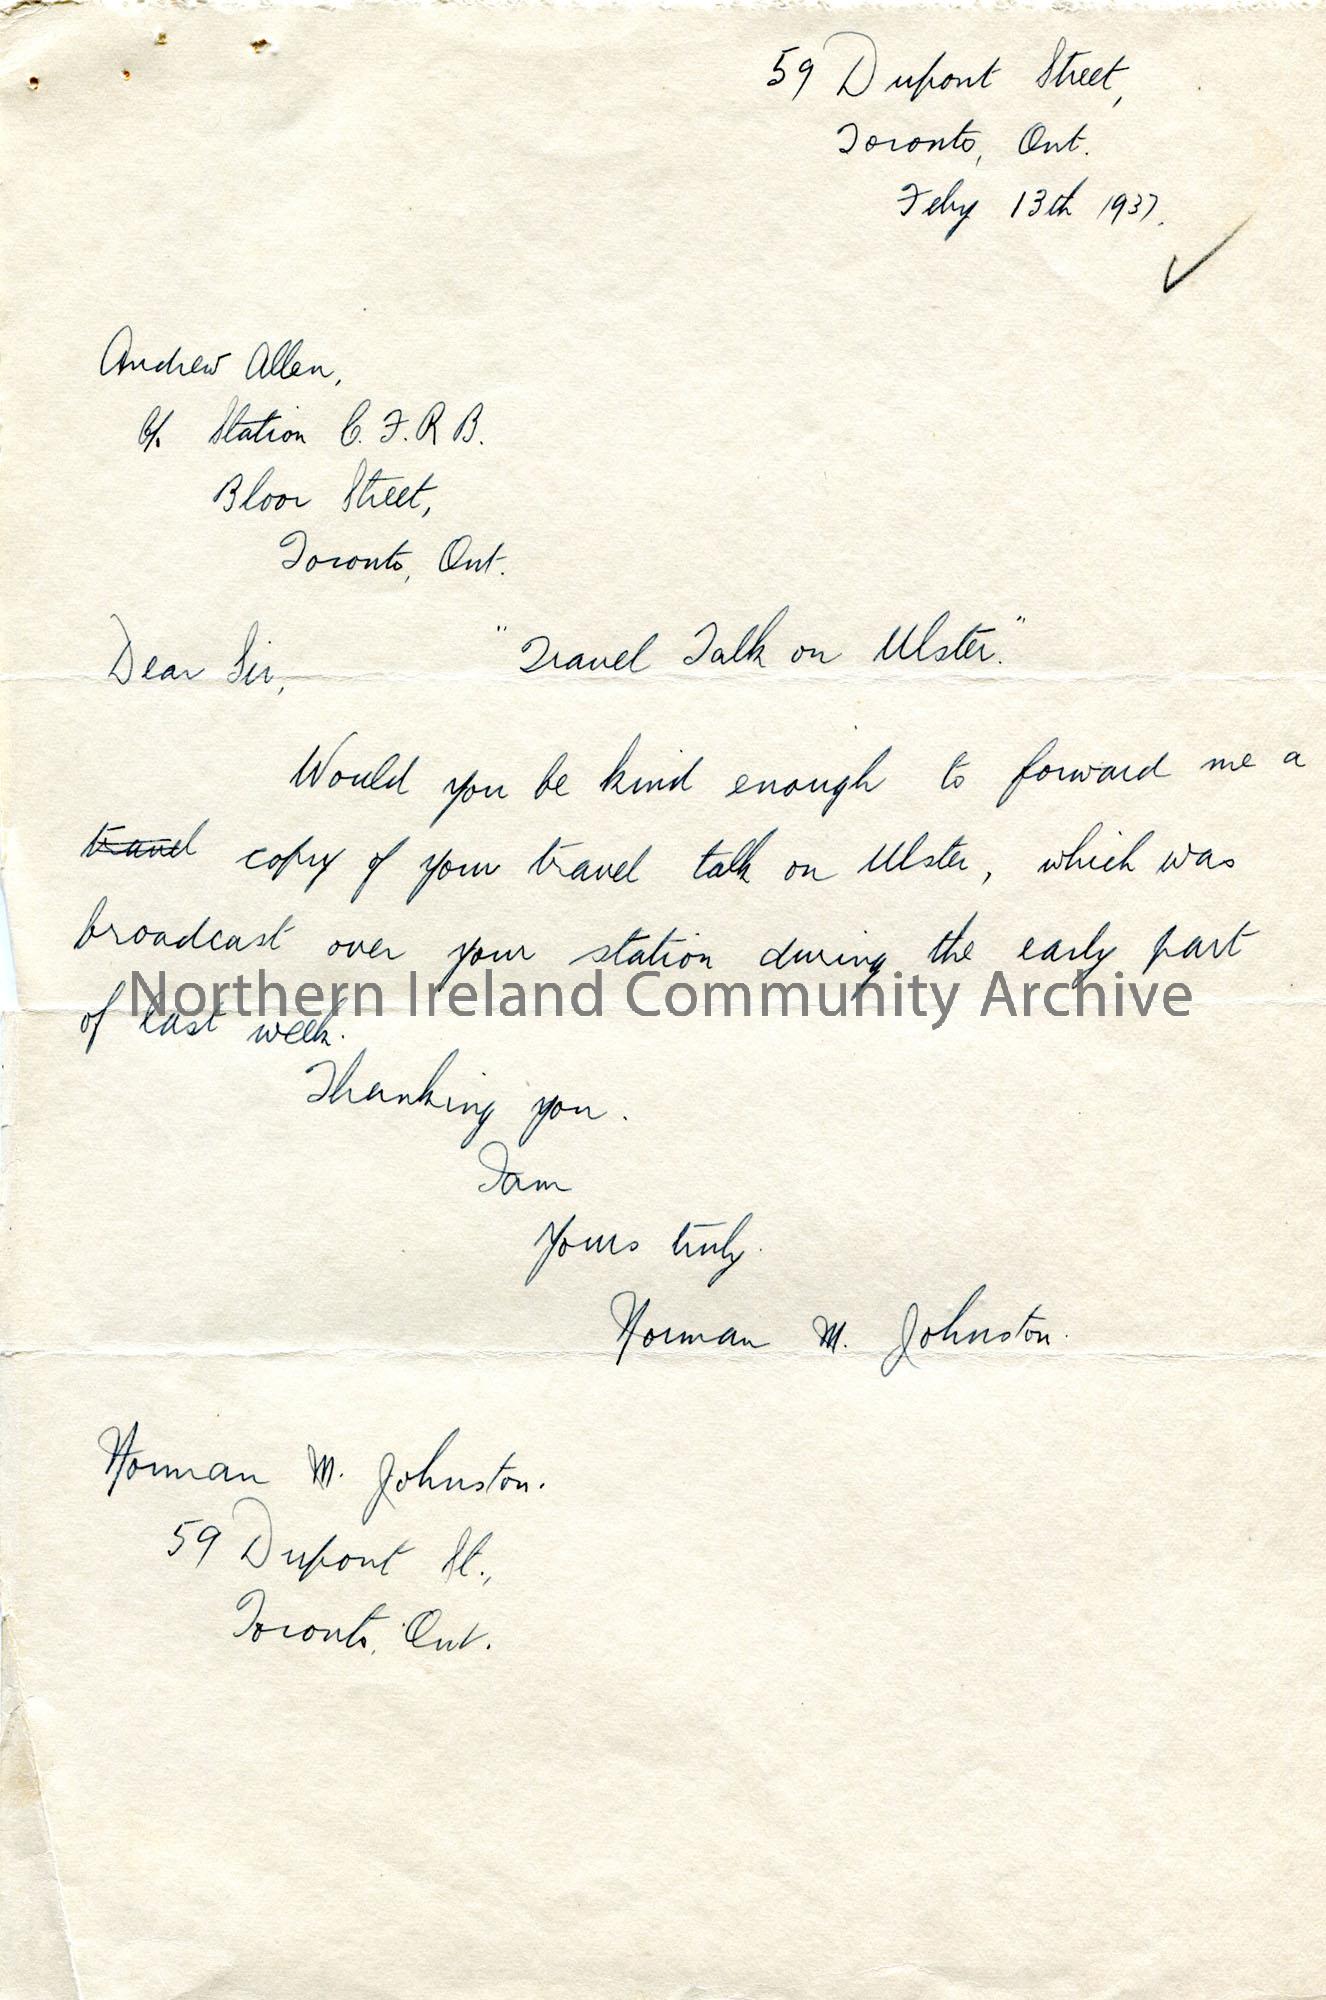 59 Dupont Street,
Toronto, Ont.
Feby 13th 1937.
Andrew Allen,
c/o Station C.F.R.B.
Bloor Street,
Toronto, Ont.
Dear Sir,
"Travel Talk on Ulster."
Would you be kind enough to forward me a
travel copy of your travel talk on Ulster, which was
broadcast over your station during the early part
Northern Ireland Community Archive
of last week.
Thanking you.
I am
Yours truly.
Norman M. Johnston.
Norman M. Johnston.
59 Dupont St.,
Toronto, Ont.